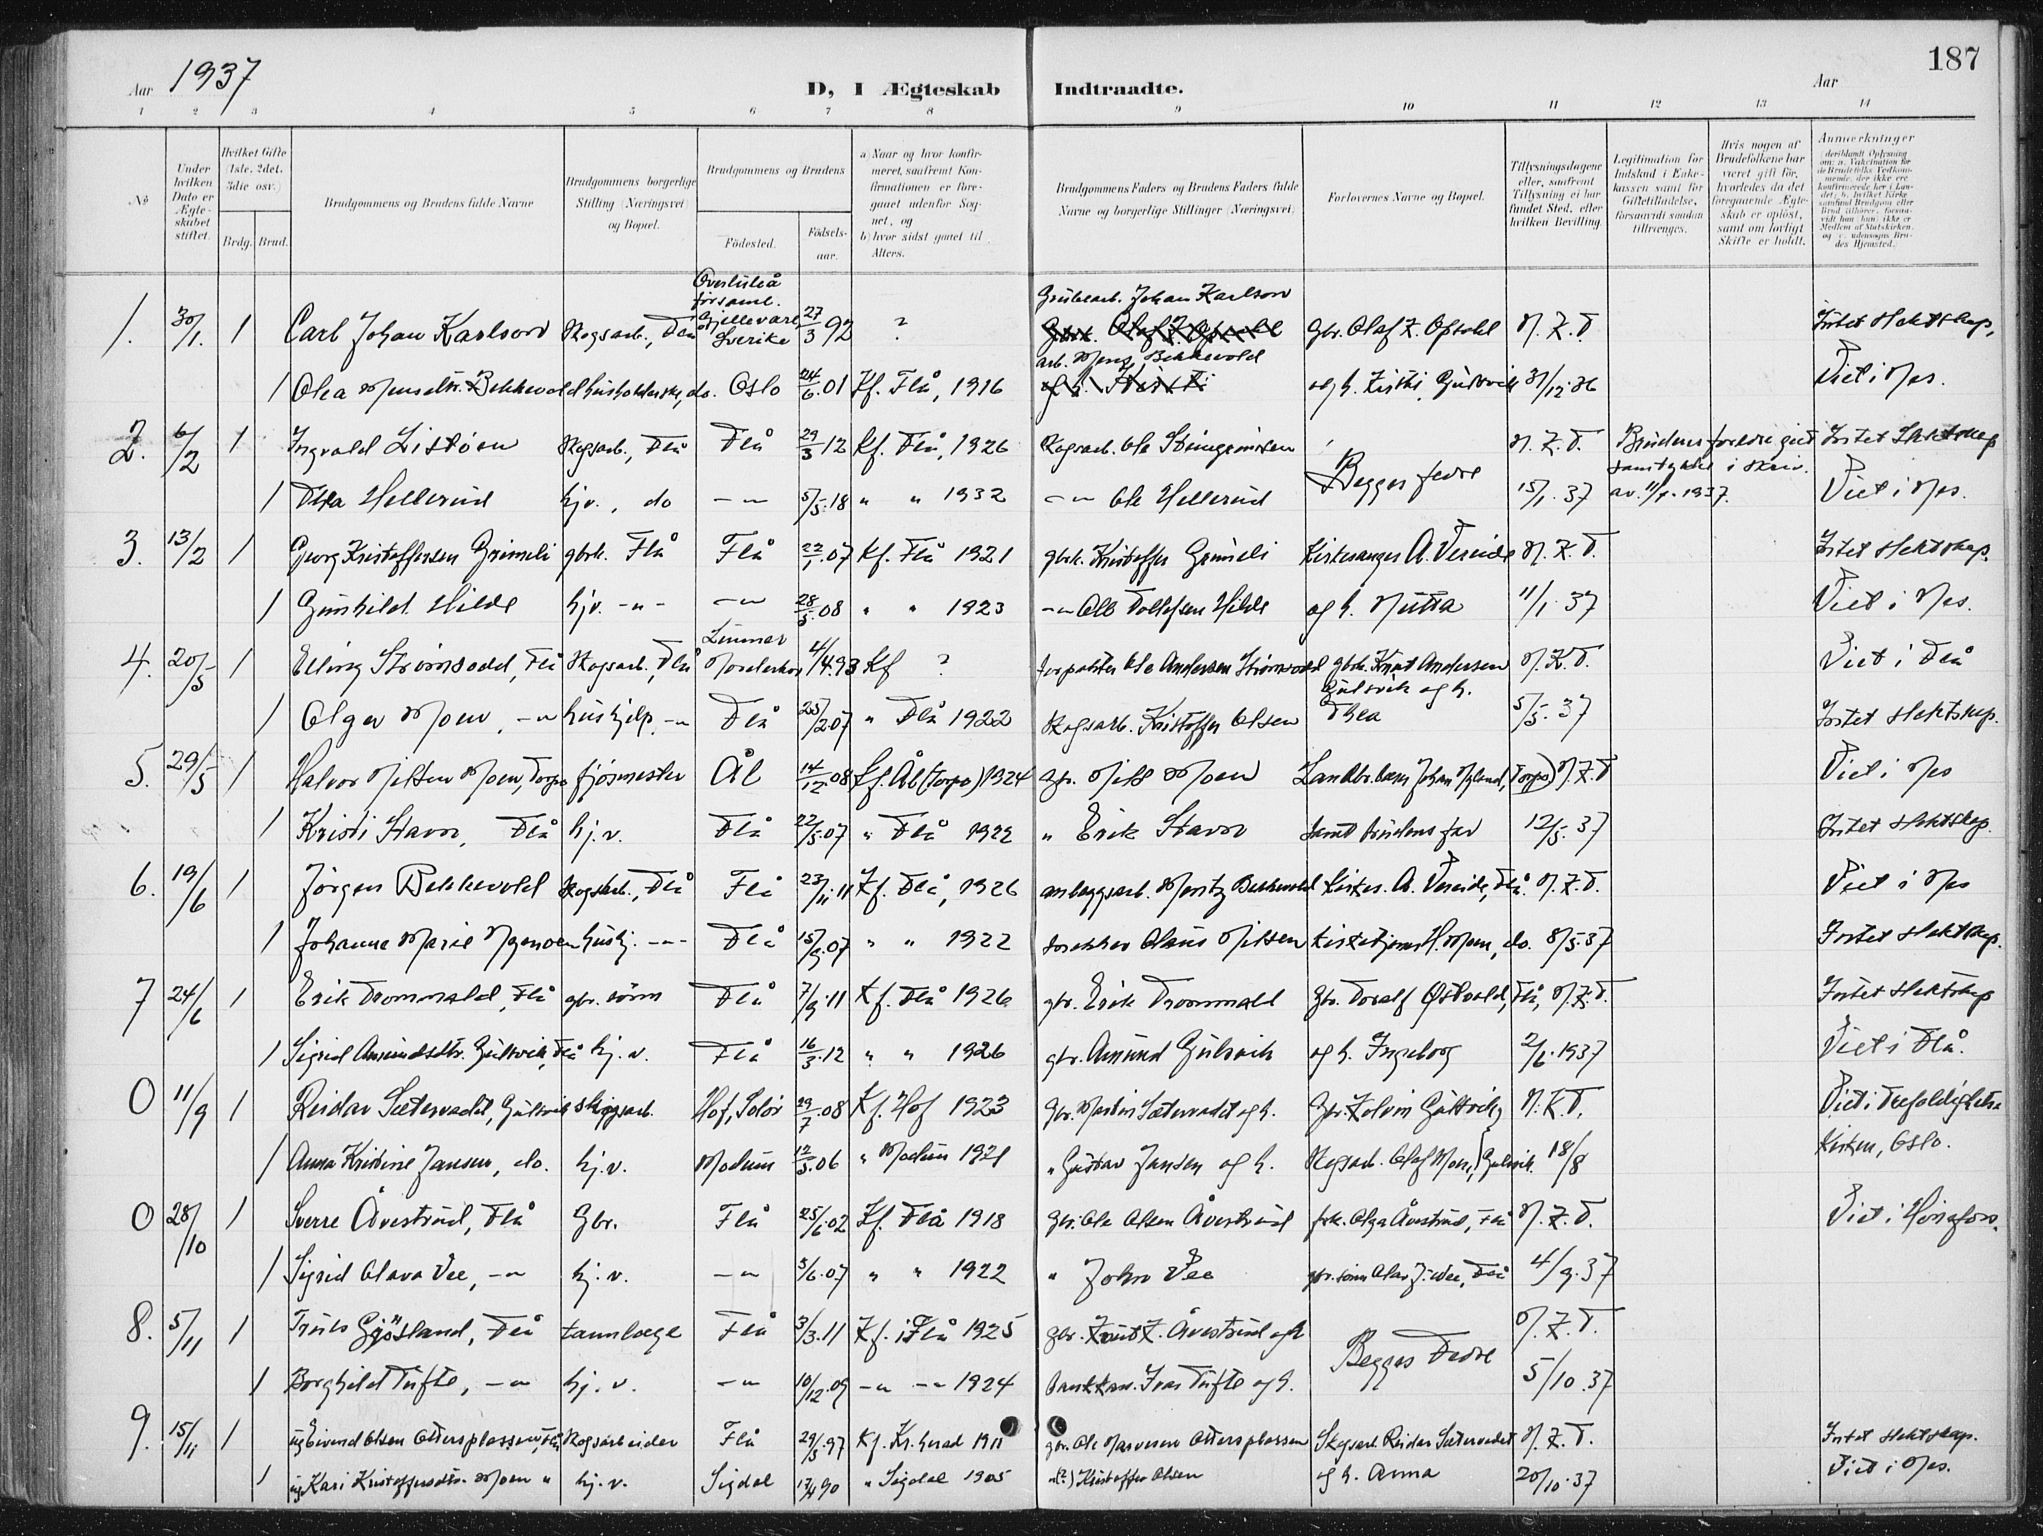 187
Aar 1937
D, I Ægteskab Indtraadte.
Aar
1 2 3 4 5 6 7 8 9 10 11 12 13 14
No
Under hvilken Dato er Ægteskabet stiftet.
Hvilket Gifte (1ste, 2det, 3die osv.)
Brdg. Brud.
Brudgommens og Brudens fulde Navne
Brudgommens borgerlige Stilling (Næringsvei) og Bopæl.
Brudgommens og Brudens
Födested.
Födselsaar.
a) Naar og hvor konfirmeret, saafremt Konfirmationen er foregaaet udenfor Sognet, og
b) hvor sidst gaaet til Alters.
Brudgommens Faders og Brudens Faders fulde Navne og borgerlige Stillinger (Næringsvei)
Forlovernes Navne og Bopæl.
Tillysningsdagene eller, saafremt Tillysning ei har fundet Sted, efter hvilken Bevilling.
Legitimation for Indskud i Enkekassen samt for Giftetilladelse, forsaavidt saadan tiltrænges.
Hvis nogen af Brudefolkene har været gift för, hvorledes da det foregaaende Ægteskab er oplöst, samt om lovligt Skifte er holdt.
Anmerkninger
Overluleå
församl. Grubearb. Johan Karlson
1. 30/1. 1 Carl Johan Karlson Skogsarb., Flå Gjellevare, Sverike 27/3 92 ? Gbr. Olaf K. Opsahl N.K.T. Intet slektskap,
arb. Mons Bekkevold
1 Olea Monsdtr. Bekkevold husholderske, do. Oslo 24/6.01 Kf. Flå, 1916 og h. Kristi, Gulsvik 31/12.36 Viet i Nes.
2. 6/2 1 Ingvald Listöen Skogsarb., Flå Flå 29/3 12 Kf. Flå, 1926 Skogsarb. Ole N.K.T. Brudens foreldre gitt Intet slektskap
samtykke i skriv.
1 Thea Hellerud hj.v., do -"- 5/5.18 " " 1932 -"- Ole Hellerud Begges fedre 15/1.37 av 11/1.1937. Viet i Nes.
3. 13/2 1 Georg Kristoffersen Grimeli gbrk. Flå Flå 22/1.07 Kf. Flå 1921 gbrk. Kristoffer Grimeli Kirkesanger A. Vereide N.K.T. Intet slektskap.
1 Gunhild Hilde hjv. -"- -"- 28/5.08 " " 1923 -"- Ole Tollefsen Hilde og h. Mutta 11/1.37 Viet i Nes.
4. 20/5 1 Elling Strømsodd, Flå Skogsarb., Flå 4/4.93 Kf ? forpakter Ole Andersen Strømsodd gbr. Knut Andersen N.K.T. Viet i Flå
Gulsvik og h.
1 Olga Moen, -"- hushjelp, -"- Flå 25/2.07 " Flå 1922 Skogsarb. Kristoffer Olsen Thea 5/5.37 Intet slektskap.
5. 29/5 1 Halvor Nilsen Moen, Torpo fjösmester Ål 14/12.08 Kf. Ål (Torpo) 1924 gbr. Nils Moen Johan Myland, (Torpo) N.K.T Viet i Nes
1 Kristi Stavn, Flå hj.v. Flå 22/5.07 " Flå 1922 " Erik Stavn samt brudens far 12/5.37 Intet slektskap.
6. 19/6 1 Jörgen Bekkevold Skogsarb., Flå Flå 23/11.11 Kf. Flå, 1926 anleggsarb. Moritz Bekkevold Kirkes. A. Vereide, Flå. N.K.T. Viet i Nes
1 Johanne Marie hushj. -"- Flå 15/9.07 " " 1922 snekker Olaus Nilsen kirketjener H. Moen, do. 8/5.37 Intet slektskap.
7 24/6 1 Erik Trommald, Flå gbr. sönn Flå 7/9.11 Kf. Flå 1926 gbr. Erik Trommald Gbr. Toralf Östvold, Flå, N.K.T. Intet slektskap
1 Sigrid Amundsdtr. Gulsvik, Flå hj.v. Flå 16/3.12 " " 1926 gbr. Amund Gulsvik og h. Ingeborg 2/6.1937 Viet i Flå.
0 11/9 1 Reidar Sætervadet, Gulsvik Skogsarb. Hof, Solör 29/7.08 Kf. Hof 1923 Gbr. Martin Sætervadet og h. Gbr. Kolbin Gulsvik N.K.T. Viet i Trefoldighets
1 Anna Kristine Jansen, do. hj.v. Modum 12/5.06 " Modum 1921 " Gustav Jansen og h. Skogsarb. Olaf Moen, Gulsvik 18/8 kirken, Oslo.
0 28/10 1 Sverre Åvestrud, Flå Gbr. Flå 25/6.02 Kf. Flå 1918 gbr. Ole Olsen Åvestrud frk. Olga Åvestrud, Flå N.K.T. Viet i Hönefoss.
1 Sigrid Olava Vee, -"- hj.v. -"- 5/6.07 " " 1922 " John Vee gbr. sönn Olav J. Vee, Flå 4/9.37
8. 5/11 1 Truls Gjösland, Flå tannlæge Flå 3/3.11 Kf. i Flå 1925 gbr. Knut K. Åvestrud og h N.K.T.
1 Borghild Tufte, -"- hj.v. -"- 10/12.09 -"- -"- 1924 bankkas. Ivar Tufte og h. Begges Fedre 5/10.37
9. 15/11 1 ug Eivend Olsen Ottersplassen, Flå Skogsarbeider Flå 29/5.97 Kf. Kr.herad 1911 gbr. Ole Ottersplassen Skogsarb. Reidar Sætervadet N.K.T. Intet slektskap.
1 ug Kari Kristoffersdtr. Moen " hj.v. Sigdal 17/4 90 " Sigdal 1905 "(?) Kristoffer Olsen og h. Anna 20/10.37 Viet i Nes.